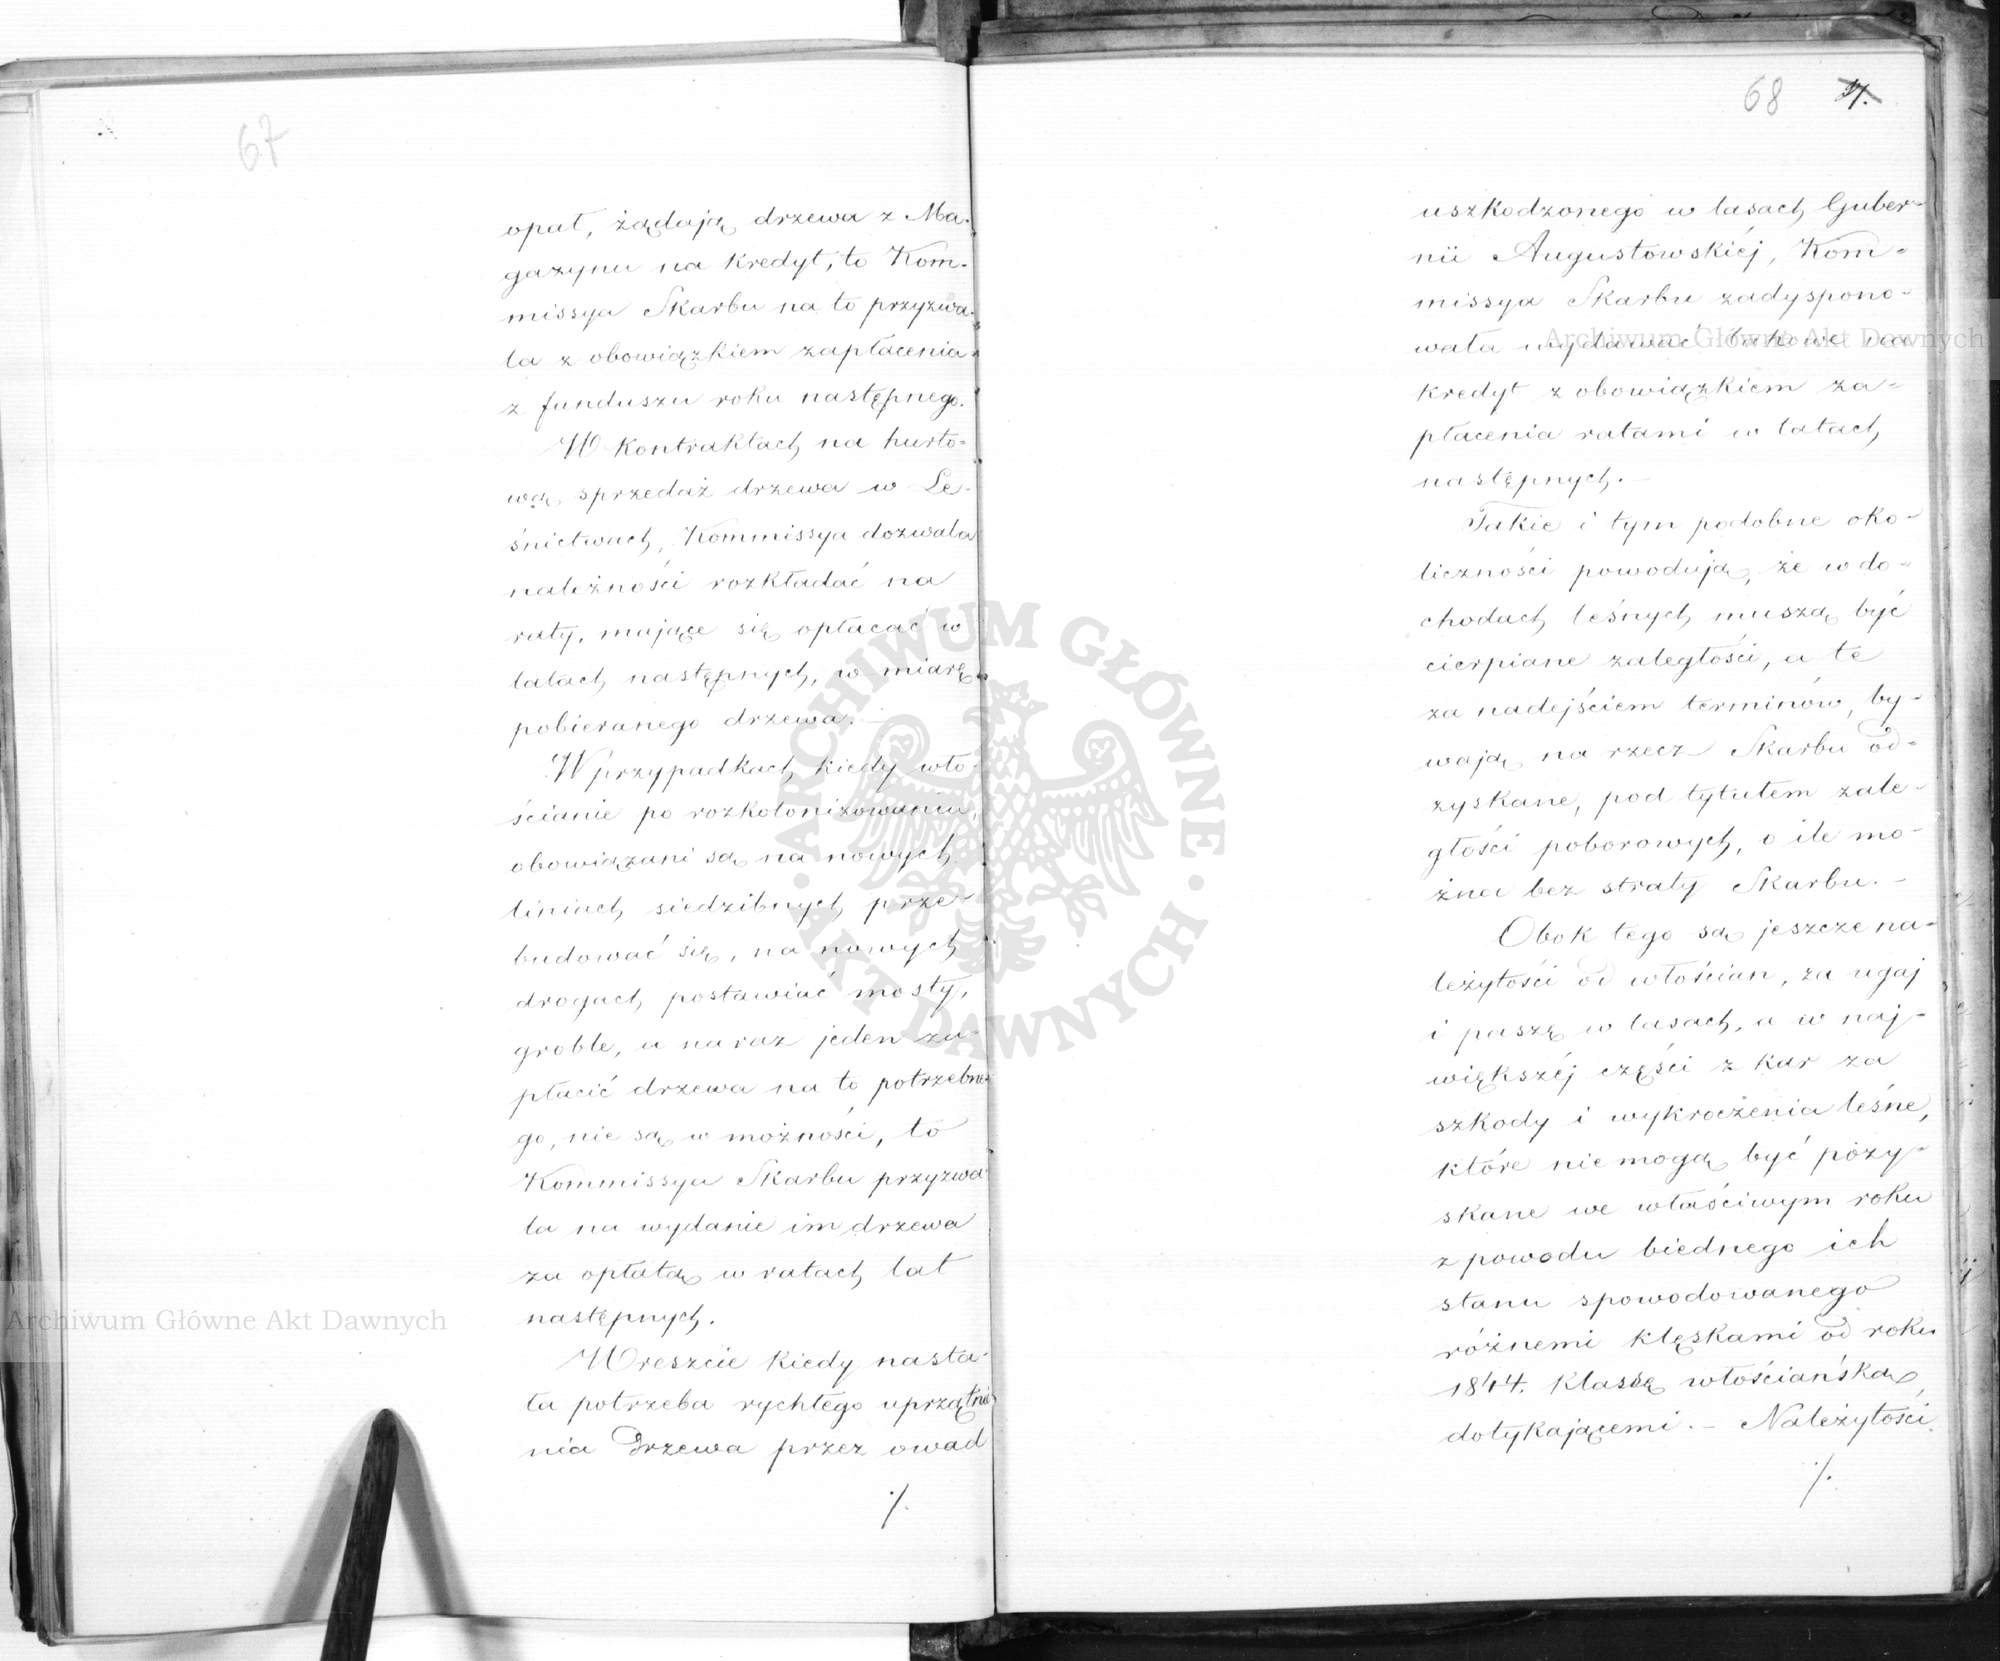 67
opał, żądają drzewa z Ma-
gazynu na kredyt, to Kom-
missya Skarbu na to przyzwa-
la z obowiązkiem zapłacenia
z funduszu roku następnego.
W kontraktach na hurto-
wą sprzedaż drzewa w Le-
śnictwach, Kommissya dozwala
należności rozkładać na
raty, mające się opłacać w
latach następnych, w miarę
pobieranego drzewa. –
W przypadkach kiedy wło-
ścianie po rozkolonizowaniu,
obowiązani są na nowych
liniach siedzibnych prze-
budować się, na nowych
drogach postawiać mosty,
groble, a na raz jeden za-
płacić drzewa na to potrzebne-
go, nie są w możności, to
Kommissya Skarbu przyzwa
la na wydanie im drzewa
za opłatą w ratach lat
następnych.
Wreszcie kiedy nasta-
ła potrzeba rychłego uprzątnie
nia Drzewa przez owad
./.
68
uszkodzonego w lasach Guber-
nii Augustowskiéj, Kom-
missya Skarbu zadyspono-
wała wydawać takowe na
kredyt z obowiązkiem za-
płacenia ratami w latach
następnych. –
Takie i tym podobne oko-
liczności powodują, że w do-
chodach leśnych muszą być
cierpiane zaległości, a te
za nadejściem terminów, by-
wają na rzecz Skarbu od-
zyskane, pod tytułem zale-
głości poborowych, o ile mo-
żna bez straty Skarbu. –
Obok tego są jeszcze na-
leżytości od włościan, za ugaj
i paszę w lasach, a w naj-
większéj części z kar za
szkody i wykroczenia leśne,
które nie mogą być pozy-
skane we właściwym roku
z powodu biednego ich
stanu spowodowanego
różnemi klęskami od roku
1844. klassę włościańską,
dotykającemi. – Należytości
./.
Archiwum Główne Akt Dawnych
Archiwum Główne Akt Dawnych
ARCHIWUM GŁÓWNE · AKT DAWNYCH ·